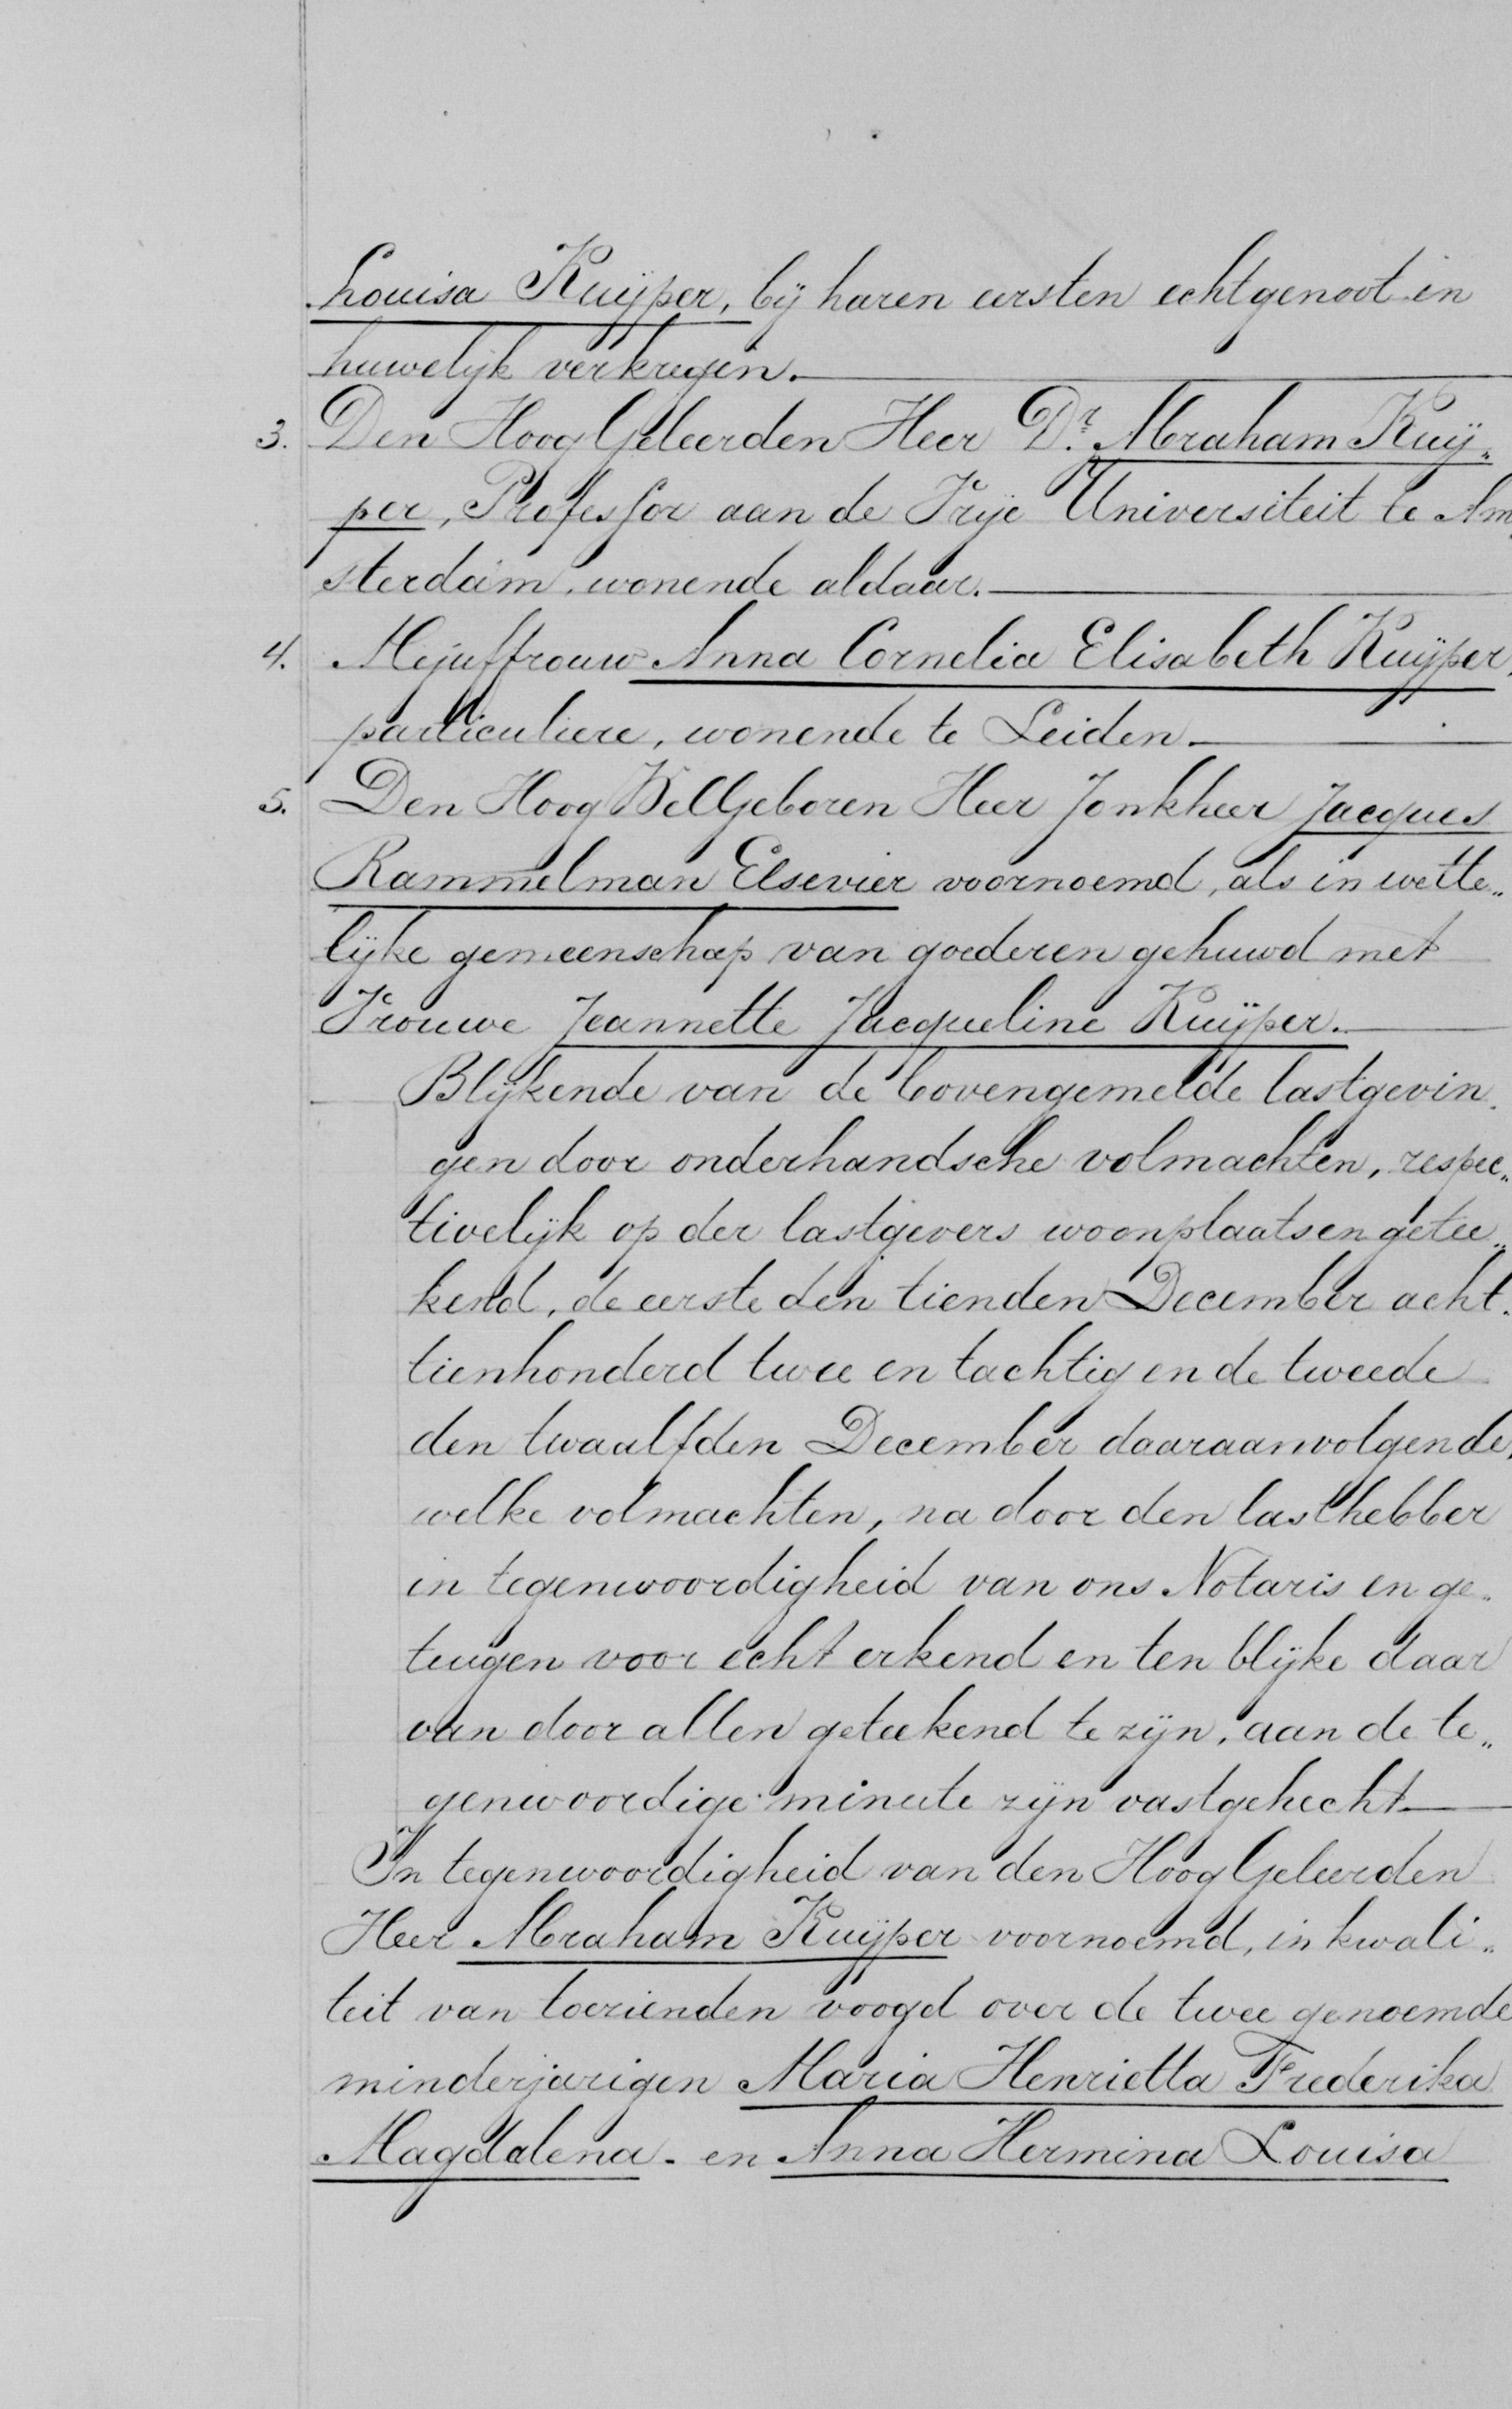 Louisa Kuijper, bij haren eersten echtgenoot in
huwelijk verkregen.
3. Den HoogGeleerden Heer Dr. Abraham Kuij„
per, Professor aan de Vrije Universiteit te Am„
sterdam, wonende aldaar.
4. Mejuffrouw Anna Cornelia Elisabeth Kuijper,
particuliere, wonende te Leiden.
5. Den HoogWelGeboren Heer Jonkheer Jacques
Rammelman Elsevier voornoemd, als in wette„
lijke gemeenschap van goederen gehuwd met
Vrouwe Jeannette Jacqueline Kuijper.
Blijkende van de bovengemelde lastgevin„
gen door onderhandsche volmachten, respec„
tivelijk op der lastgevers woonplaatsen getee„
kend, de eerste den tienden December acht„
tienhonderd twee en tachtig en de tweede
den twaalfden December daaraanvolgende,
welke volmachten, na door den lasthebber
in tegenwoordigheid van ons Notaris en ge„
tuigen voor echt erkend en ten blijke daar
van door allen geteekend te zijn, aan de te„
genwoordige minute zijn vastgehecht
In tegenwoordigheid van den HoogGeleerden
Heer Abraham Kuijper voornoemd, in kwali„
teit van toezienden voogd over de twee genoemde
minderjarigen Maria Henrietta Frederika
Magdalena - en Anna Hermina Louisa